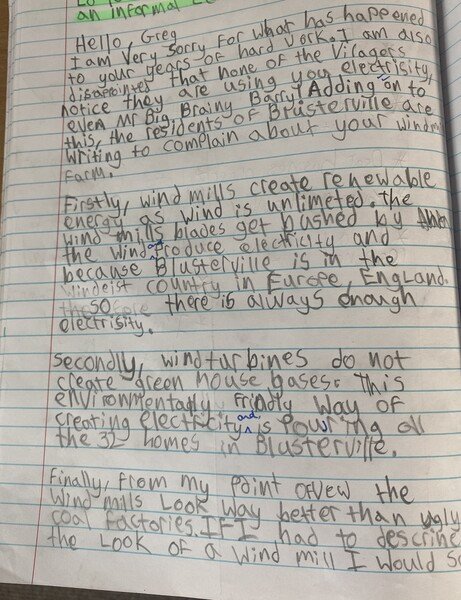 an informal Le
Hello, Greg
I am very sorry for what has happened
to your years of hard work. I am also
disapointed that none of the Vilagers
notice they are using your electrisity,
even Mr Big Brainy Barry! Adding on to
this, the residents of Brusterville are
writing to complain about your windmi
farm.
Firstly, wind mills create renewable
energy as wind is unlimeted. the
wind mills blades get pushed by
the wind and produce electricity and
because Blusterville is in the
windeist country in Europe, England.
so there is always enough
electrisity.
Secondly, windturbines do not
create green house gases. This
environmentally fridly way of
creating electricity and is powring all
the 32 homes in Blusterville.
Finally, from my point of vew the
wind mills look way better than ugly
coal factories. If I had to descrine
the look of a wind mill I would so